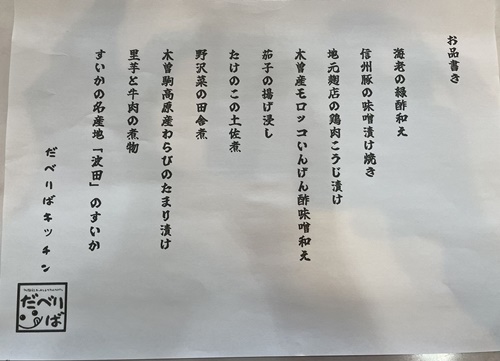 お品書き
海老の緑酢和え
信州豚の味噌漬け焼き
地元麹店の鶏肉こうじ漬け
木曽産モロッコいんげん酢味噌和え
茄子の揚げ浸し
たけのこの土佐煮
野沢菜の田舎煮
木曽駒高原産わらびのたまり漬け
里芋と牛肉の煮物
すいかの名産地「波田」のすいか
だべりばキッチン
だべり
ば